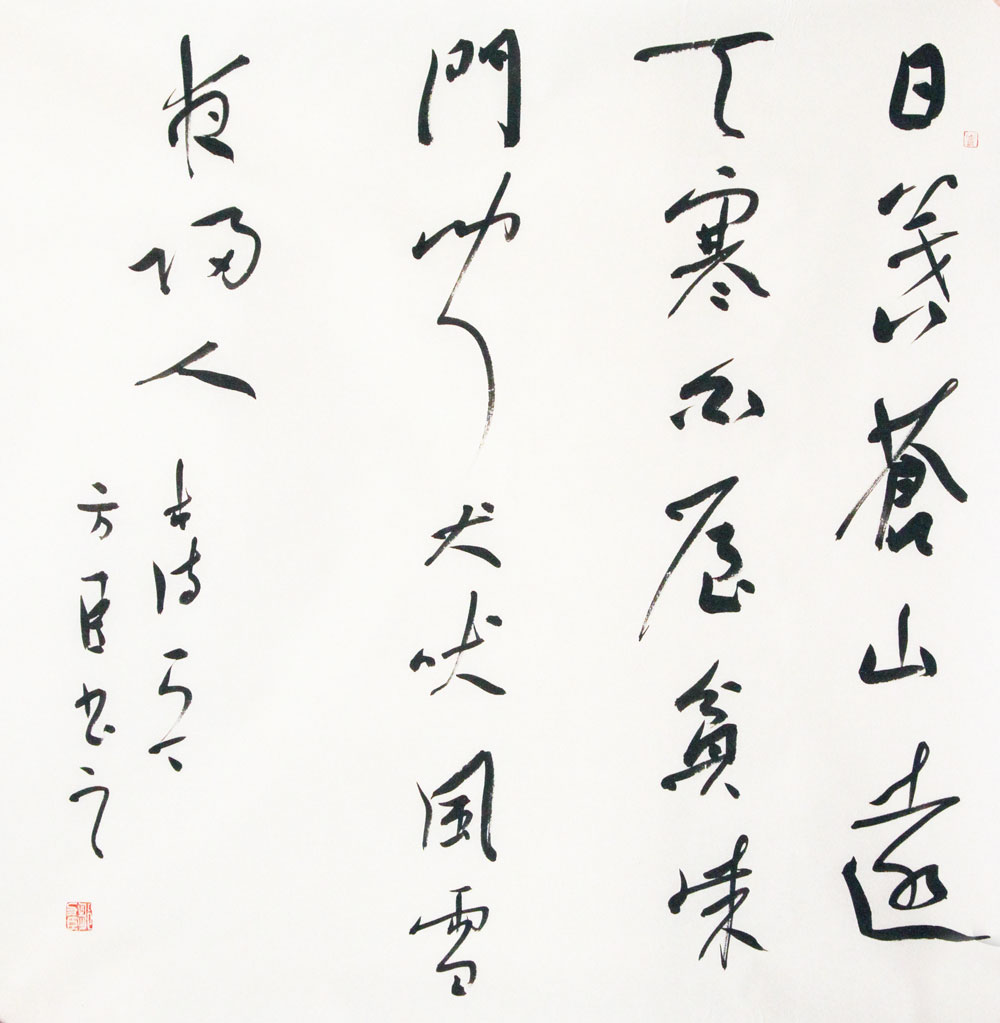 日暮蒼山遠
天寒白屋貧柴
門聞犬吠風雪
夜歸人
古詩一首
方臣書之